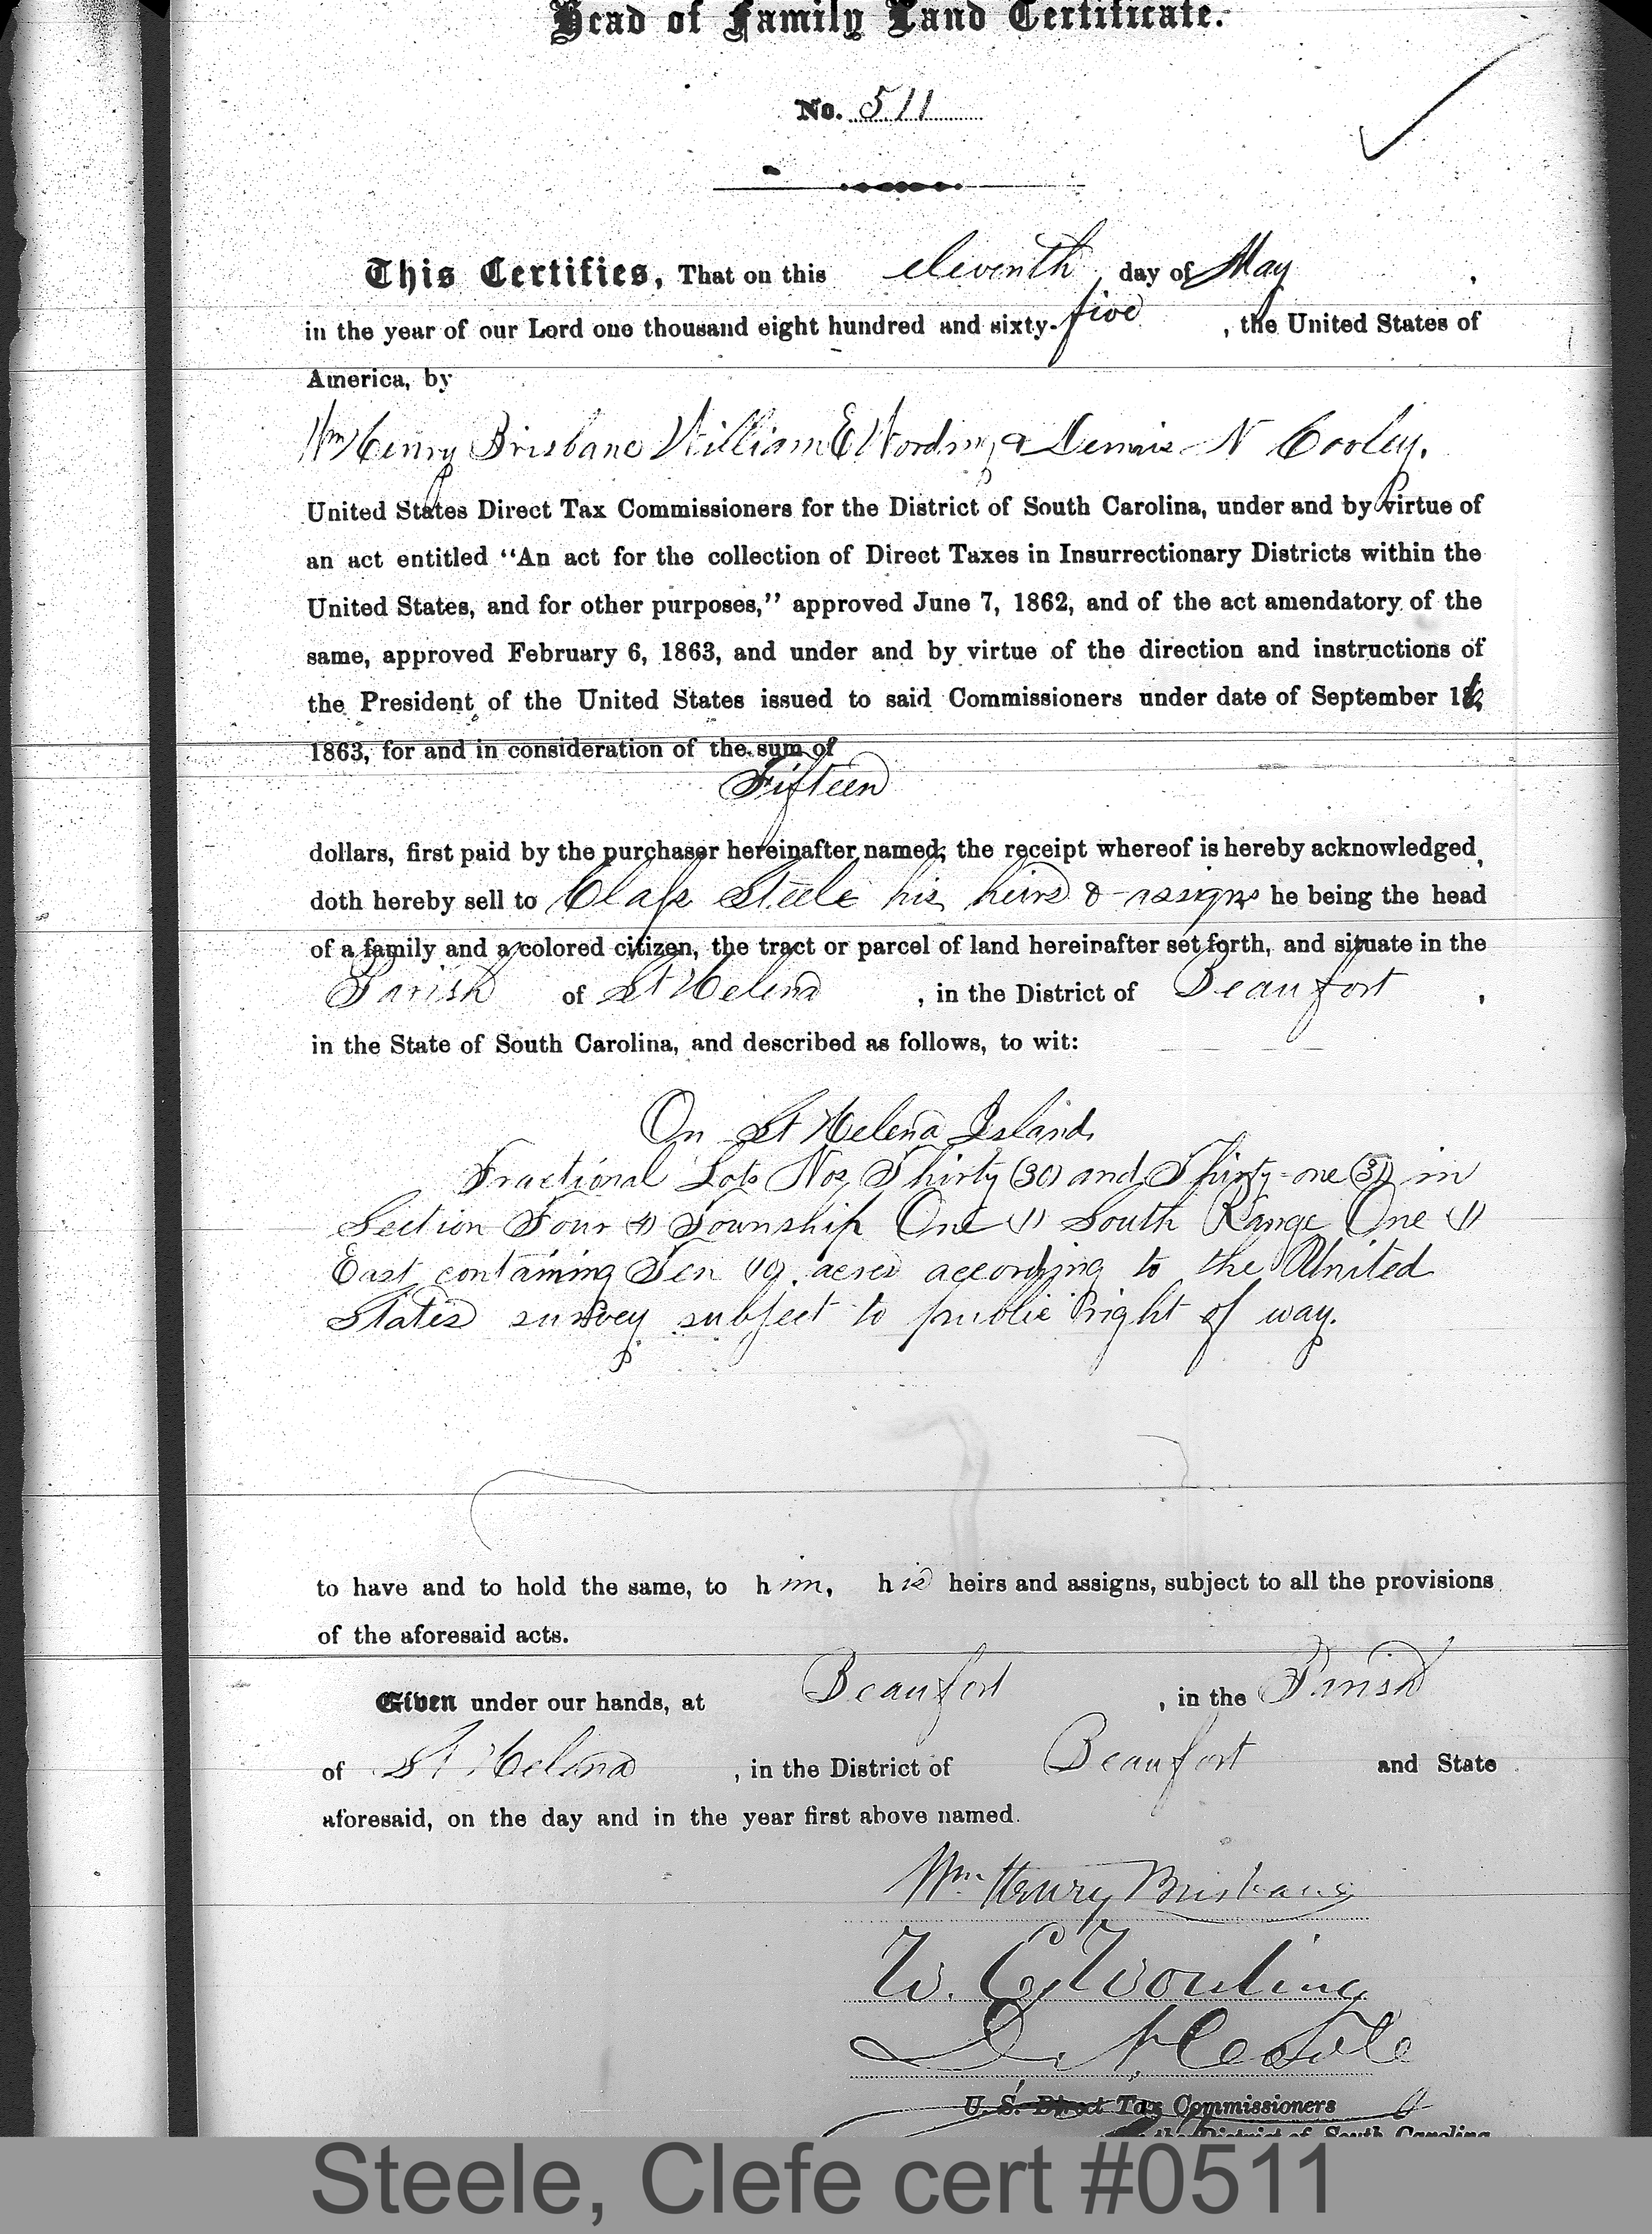 Head of Family Land Certificate.
No. 511
This Certifies, That on this eleventh day of May,
in the year of our Lord one thousand eight hundred and sixty-five, the United States of
America, by
Wm Henry Brisbane William E Wording & Dennis N Cooley.
United States Direct Tax Commissioners for the District of South Carolina, under and by virtue of
an act entitled "An act for the collection of Direct Taxes in Insurrectionary Districts within the
United States, and for other purposes," approved June 7, 1862, and of the act amendatory of the
same, approved February 6, 1863, and under and by virtue of the direction and instructions of
the President of the United States issued to said Commissioners under date of September 16,
1863, for and in consideration of the sum of
Fifteen
dollars, first paid by the purchaser hereinafter named, the receipt whereof is hereby acknowledged,
doth hereby sell to Steele his heirs & assigns he being the head
of a family and a colored citizen, the tract or parcel of land hereinafter set forth, and situate in the
Parish of St Helena, in the District of Beaufort,
in the State of South Carolina, and described as follows, to wit:
On St Helena Island,
Fractional Lots Nos Thirty (30) and Thirty-one (31) in
Section Four (4) Township One (1) South Range One (1)
East containing Ten (10) acres according to the United
States survey subject to public right of way.
to have and to hold the same, to him, his heirs and assigns, subject to all the provisions
of the aforesaid acts.
Given under our hands, at Beaufort, in the Parish
of St Helena, in the District of Beaufort and State
aforesaid, on the day and in the year first above named.
Wm. Henry Brisbane
W. E. Wording
D. N. Cooley
U. S. Direct Tax Commissioners
for the District of South Carolina
Steele, Clefe cert #0511